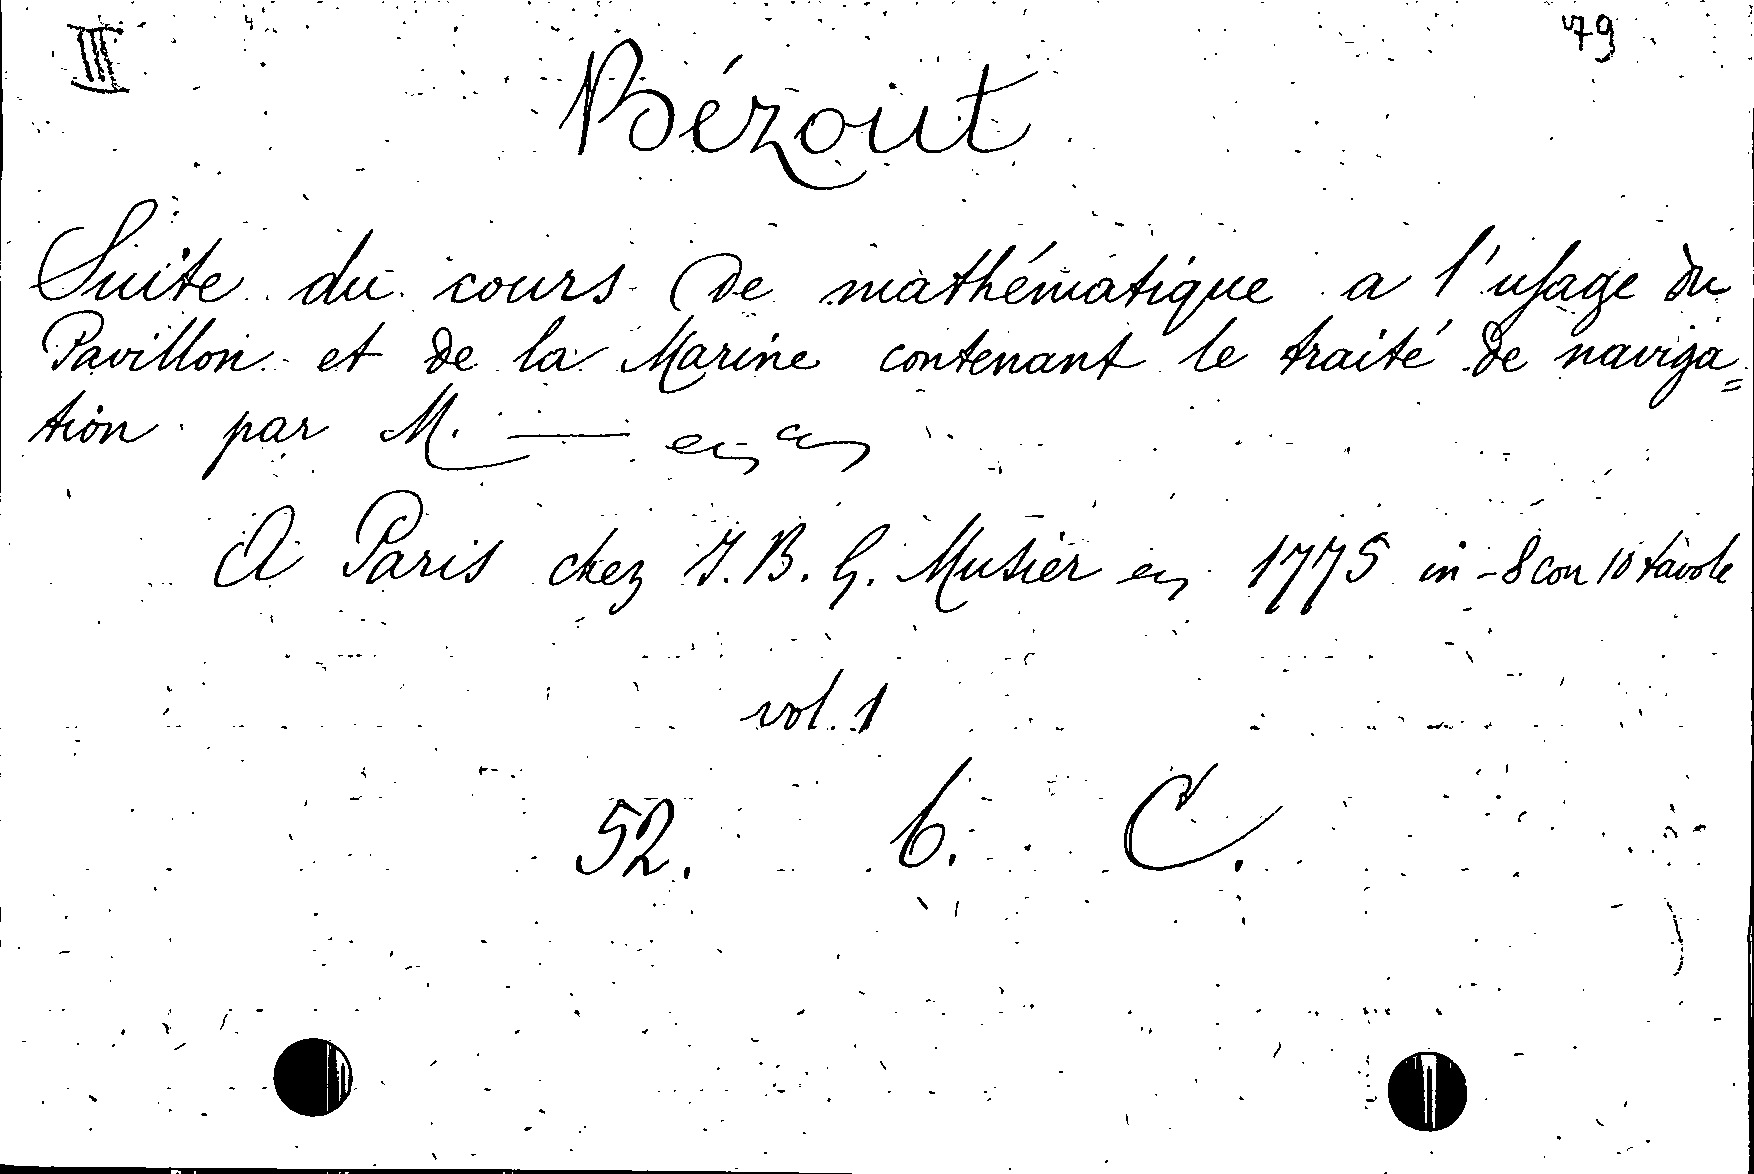 III 79
Bézout
Suite du cours de mathématique a l'usage du
Pavillon et de la Marine contenant le traité de naviga=
tion par M. ———
A Paris chez J. B. G. Musier en 1775 in-8 con 10 tavole
vol. 1
52. 6. C.